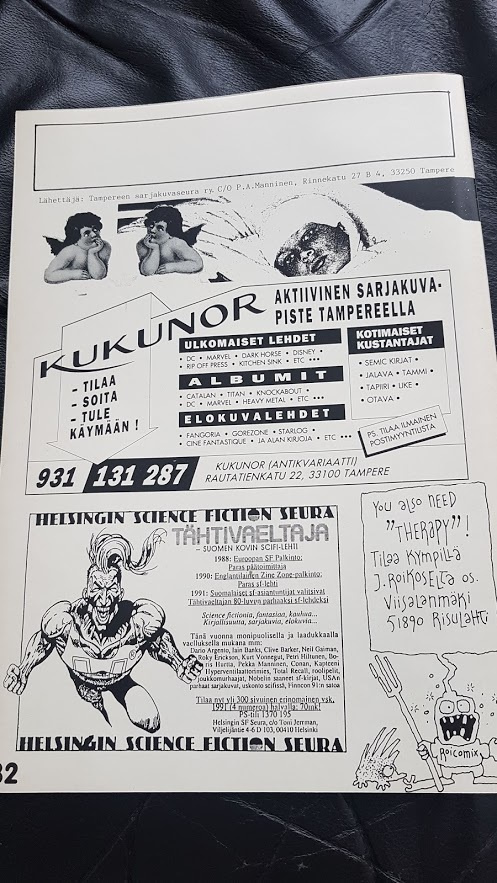 Lähettäjä: Tampereen sarjakuvaseura ry. C/O P.A.Manninen, Rinnekatu 27 B 4, 33250 Tampere
KUKUNOR
AKTIIVINEN SARJAKUVA-
PISTE TAMPEREELLA
- TILAA
- SOITA
- TULE
KÄYMÄÄN !
ULKOMAISET LEHDET
• DC • MARVEL • DARK HORSE • DISNEY •
• RIP OFF PRESS • KITCHEN SINK • ETC •••
ALBUMIT
• CATALAN • TITAN • KNOCKABOUT •
• DC • MARVEL • HEAVY METAL • ETC •••
ELOKUVALEHDET
• FANGORIA • GOREZONE • STARLOG •
• CINE FANTASTIQUE • JA ALAN KIRJOJA • ETC •••
KOTIMAISET
KUSTANTAJAT
• SEMIC KIRJAT •
• JALAVA • TAMMI •
• TAPIRI • LIKE •
• OTAVA •
PS. TILAA ILMAINEN
POSTIMYYNTILISTA
931 131 287
KUKUNOR (ANTIKVARIAATTI)
RAUTATIENKATU 22, 33100 TAMPERE
HELSINGIN SCIENCE FICTION SEURA
TÄHTIVAELTAJA
– SUOMEN KOVIN SCIFI-LEHTI
1988: Euroopan SF Palkinto:
Paras päätoimittaja
1990: Englantilainen Zine Zone-palkinto:
Paras sf-lehti
1991: Suomalaiset sf-asiantuntijat valitsivat
Tähtivaeltajan 80-luvun parhaaksi sf-lehdeksi
Science fictionia, fantasiaa, kauhua...
Kirjallisuutta, sarjakuvia, elokuvia...
Tänä vuonna monipuolisella ja laadukkaalla
vaelluksella mukana mm:
Dario Argento, Iain Banks, Clive Barker, Neil Gaiman,
Roky Erickson, Kurt Vonnegut, Petri Hiltunen, Bo-
ris Hurtta, Pekka Manninen, Conan, Kapteeni
Hyperventilaattorimies, Total Recall, roolipelit,
joukkomurhaajat, Nobelin saaneet sf-kirjat, USAn
parhaat sarjakuvat, uskonto scifissä, Finncon 91:n satoa
Tilaa nyt yli 300 sivuinen erinomainen vsk.
1991 (4 numeroa) halvalla: 70mk!
PS-tili 1370 195
Helsingin SF Seura, c/o Toni Jerrman,
Viljelijäntie 4-6 D 103, 00410 Helsinki
HELSINGIN SCIENCE FICTION SEURA
You also NEED
"THERAPY"!
Tilaa KYMPILLÄ
J. ROIKOSELTA os.
Viisalanmäki
51890 Risulahti
Roicomix
32